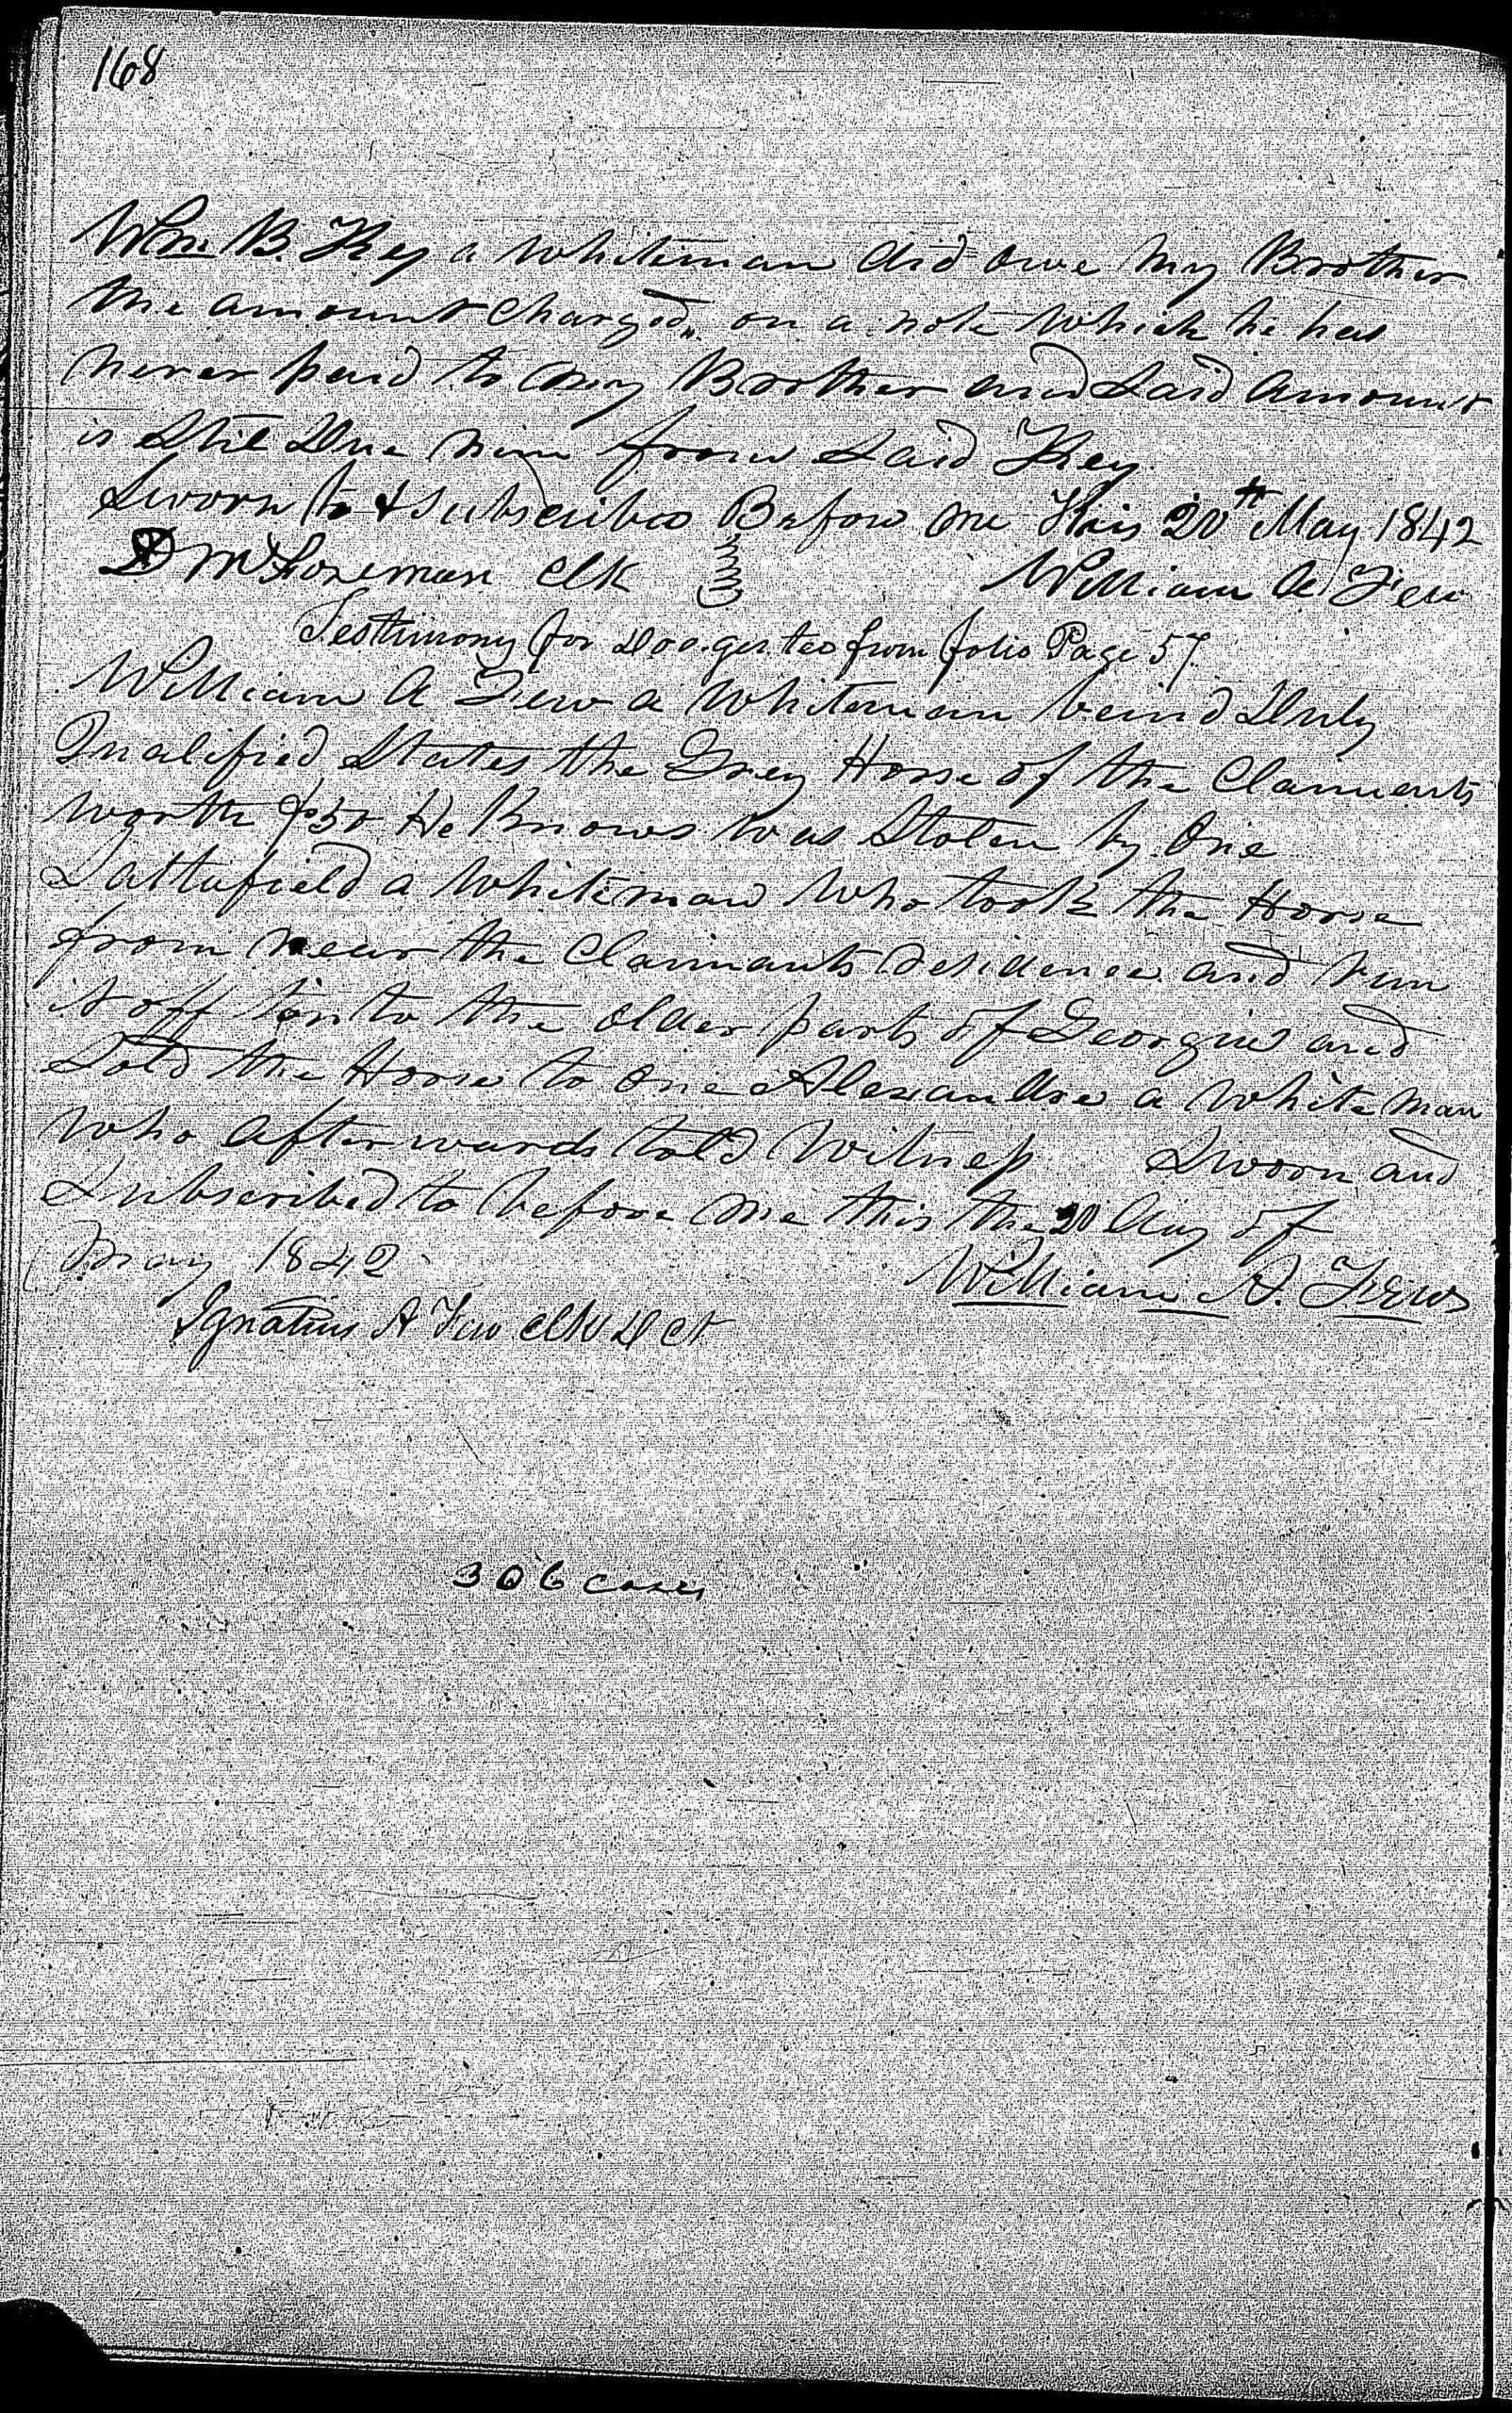 168
Wm B. Key a Whiteman did owe My Brother
the amount Charged on a note Which he has
never paid to my Brother and Said Amount
is Stil Due him from Said Key
Sworn to & subscribed Before me This 20th May 1842
D McForeman Clk William A Few
Testimony for from folio Page 57
William A Few a Whiteman being Duly
Qualified States the Grey Horse of the Claimants
worth He Knows was Stolen by One
Sattufield a Whiteman Who took the Horse
from near the Claimants Residence and run
it off into the older parts of Georgia and
Sold the Horse to one Alexandre a White man
Who afterwards told Witness Sworn and
Subscribed to before me this the 20 day of
May 1842 William A. Few
Ignatius A Few Clk
306 cases